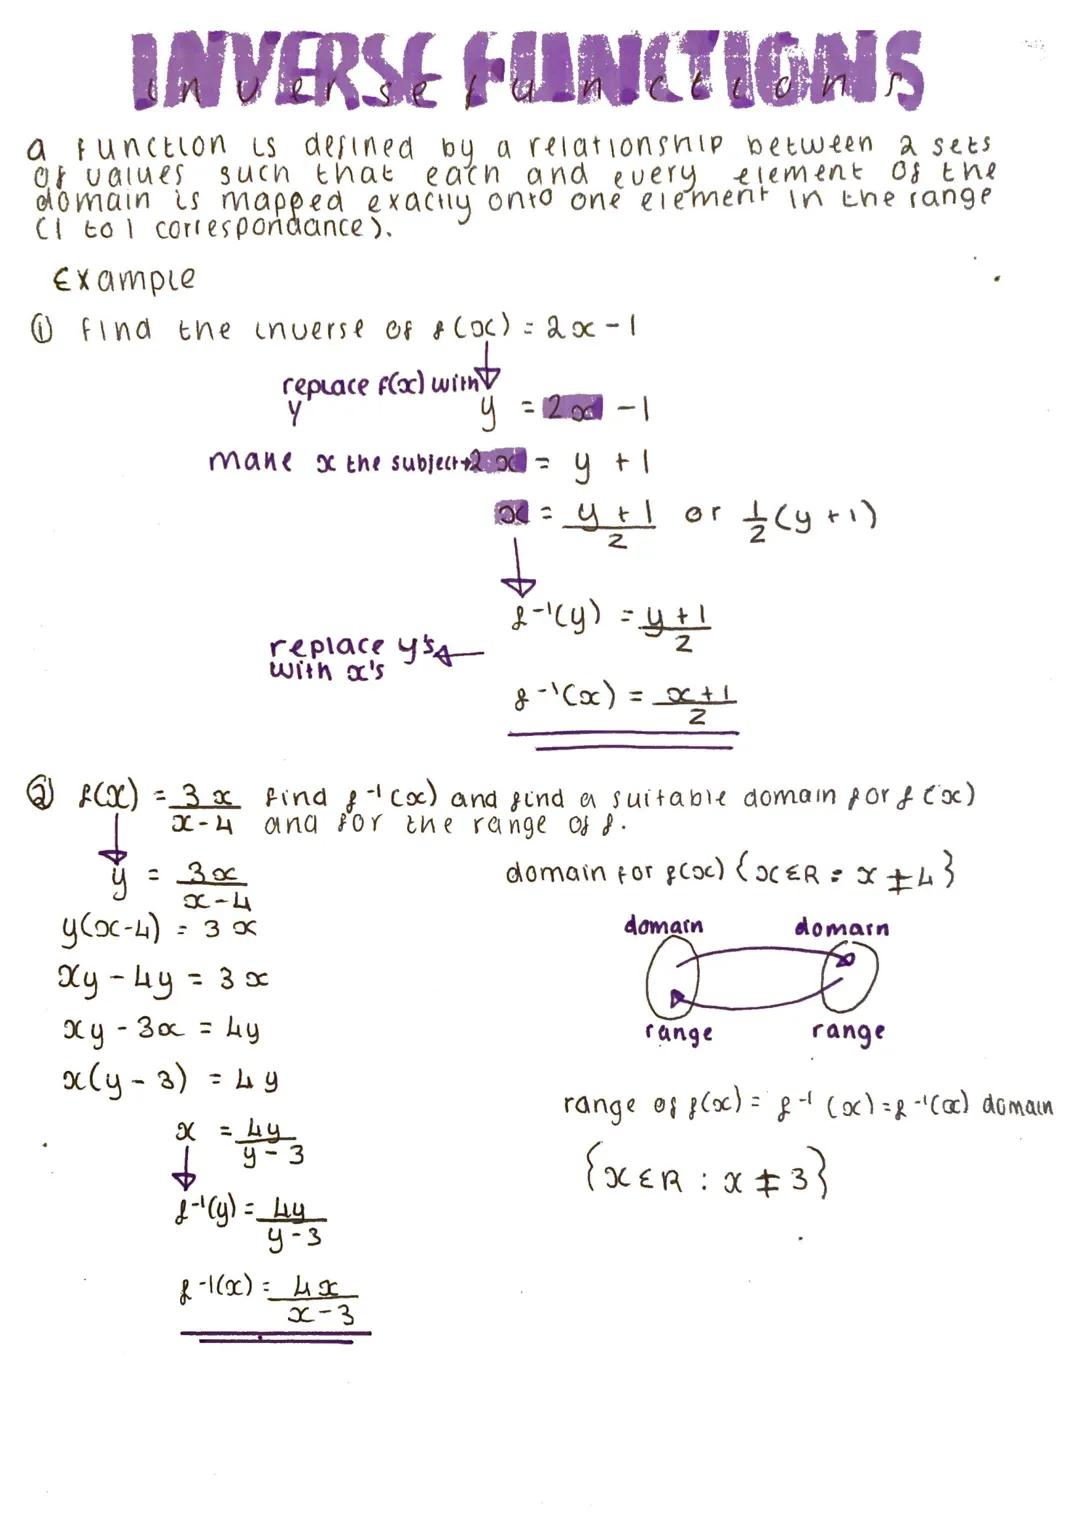 INVERSE FUNCTIONS
inverse functions
a function is defined by a relationship between 2 sets
of values such that each and every element of the
domain is mapped exactly onto one element in the range
(1 to 1 correspondance).
Example
① find the inverse of f(x) = 2x - 1
replace f(x) with
y
y = 2x - 1
make x the subject→ 2x = y + 1
x = y + 1 / 2 or 1/2 (y + 1)
f⁻¹(y) = y + 1 / 2
replace y's
with x's
f⁻¹(x) = x + 1 / 2
② f(x) = 3x / x - 4 find f⁻¹(x) and find a suitable domain for f(x)
and for the range of f.
y = 3x / x - 4
y(x-4) = 3x
xy - 4y = 3x
xy - 3x = 4y
x(y - 3) = 4y
x = 4y / y - 3
f⁻¹(y) = 4y / y - 3
f⁻¹(x) = 4x / x - 3
domain for f(x) {x∈R : x ≠ 4}
domain domain
range range
range of f(x) = f⁻¹(x) = f⁻¹(x) domain
{x∈R : x ≠ 3}